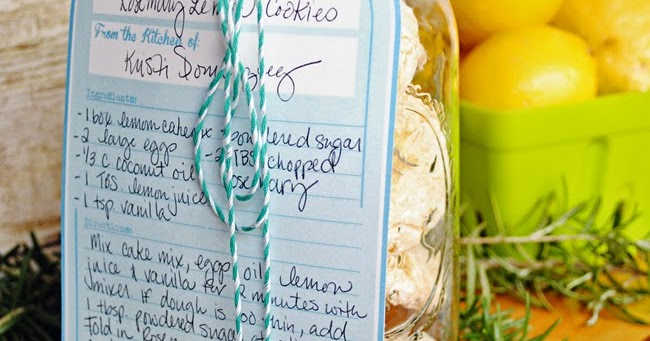 Rosemary Lemon Cookies
From the Kitchen of:
Ingredients:
-1 box lemon cake mix - powdered sugar
-2 large eggs -2 TBS chopped
-1/3 c coconut oil rosemary
-1 TBS. lemon juice
-1 tsp. vanilla
Directions:
Mix cake mix, eggs, oil, lemon
juice & vanilla for 2 minutes with
mixer. If dough is too thin, add
1 tbsp. powdered sugar
Fold in